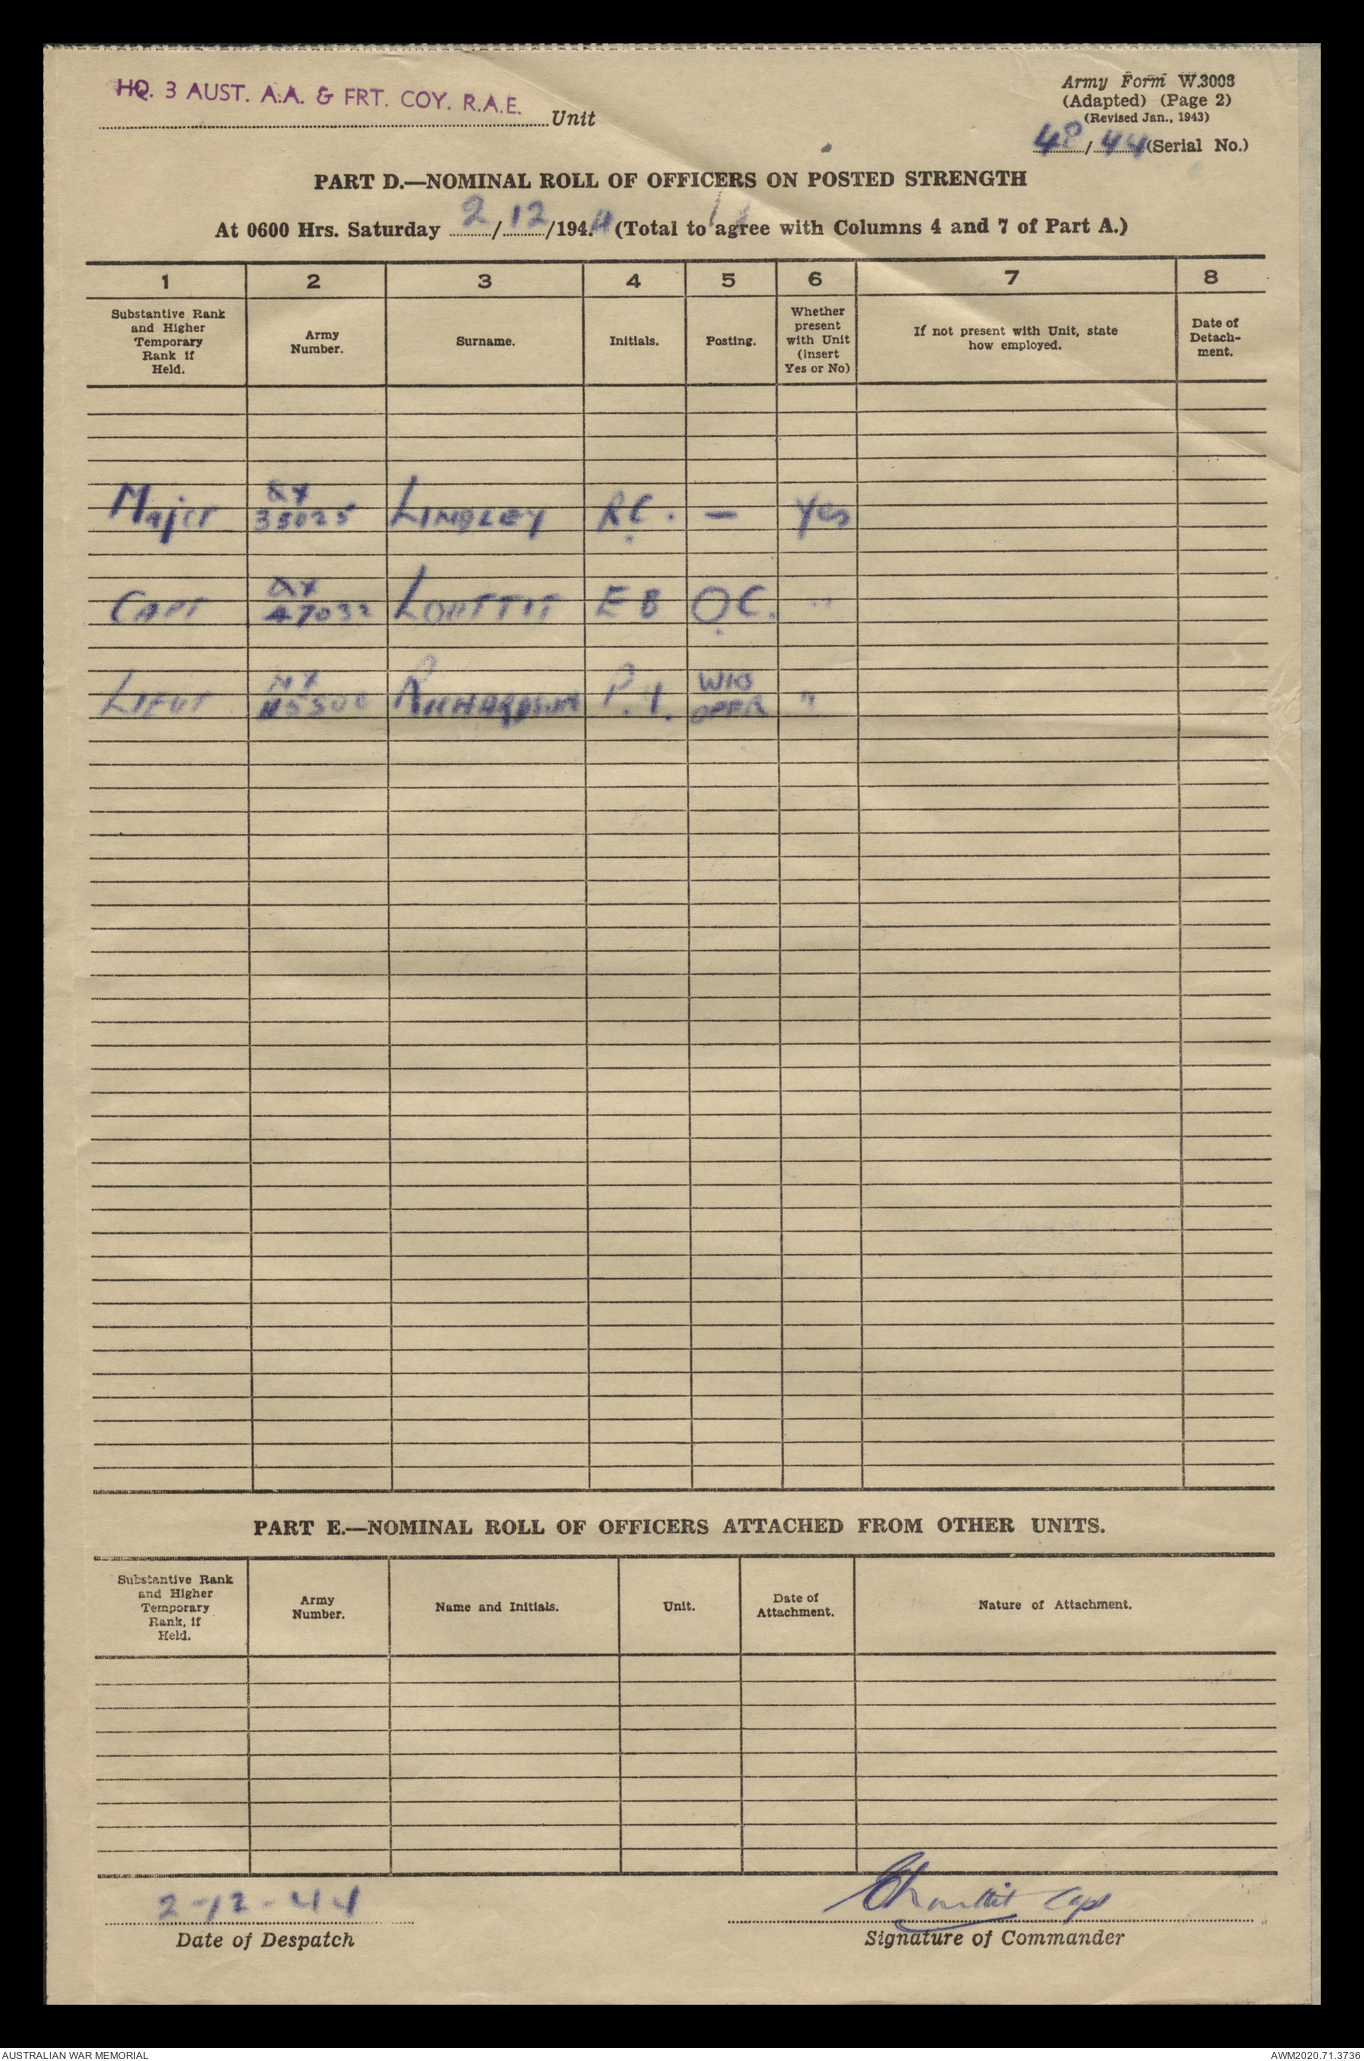 HQ. 3 AUST. A.A. & FRT. COY. R.A.E. Unit
Army Form W.3008
(Adapted) (Page 2)
(Revised Jan., 1943)
48/44 (Serial No.)
PART D.—NOMINAL ROLL OF OFFICERS ON POSTED STRENGTH
At 0600 Hrs. Saturday 2/12/1944 (Total to agree with Columns 4 and 7 of Part A.)
1 2 3 4 5 6 7 8
Substantive Rank and Higher Temporary Rank if Held.
Army Number.
Surname.
Initials.
Posting.
Whether present with Unit (insert Yes or No)
If not present with Unit, state how employed.
Date of Detachment.
Major QX 35025 LINDLEY R.C. — Yes
CAPT 47032 LOUTTIT E B O.C. "
LIEUT RICHARDSON P. WKS OFFR "
PART E.—NOMINAL ROLL OF OFFICERS ATTACHED FROM OTHER UNITS.
Substantive Rank and Higher Temporary Rank, if Held.
Army Number.
Name and Initials.
Unit.
Date of Attachment.
Nature of Attachment.
2-12-44
Date of Despatch
EB Louttit Capt
Signature of Commander
AUSTRALIAN WAR MEMORIAL
AWM2020.71.3736